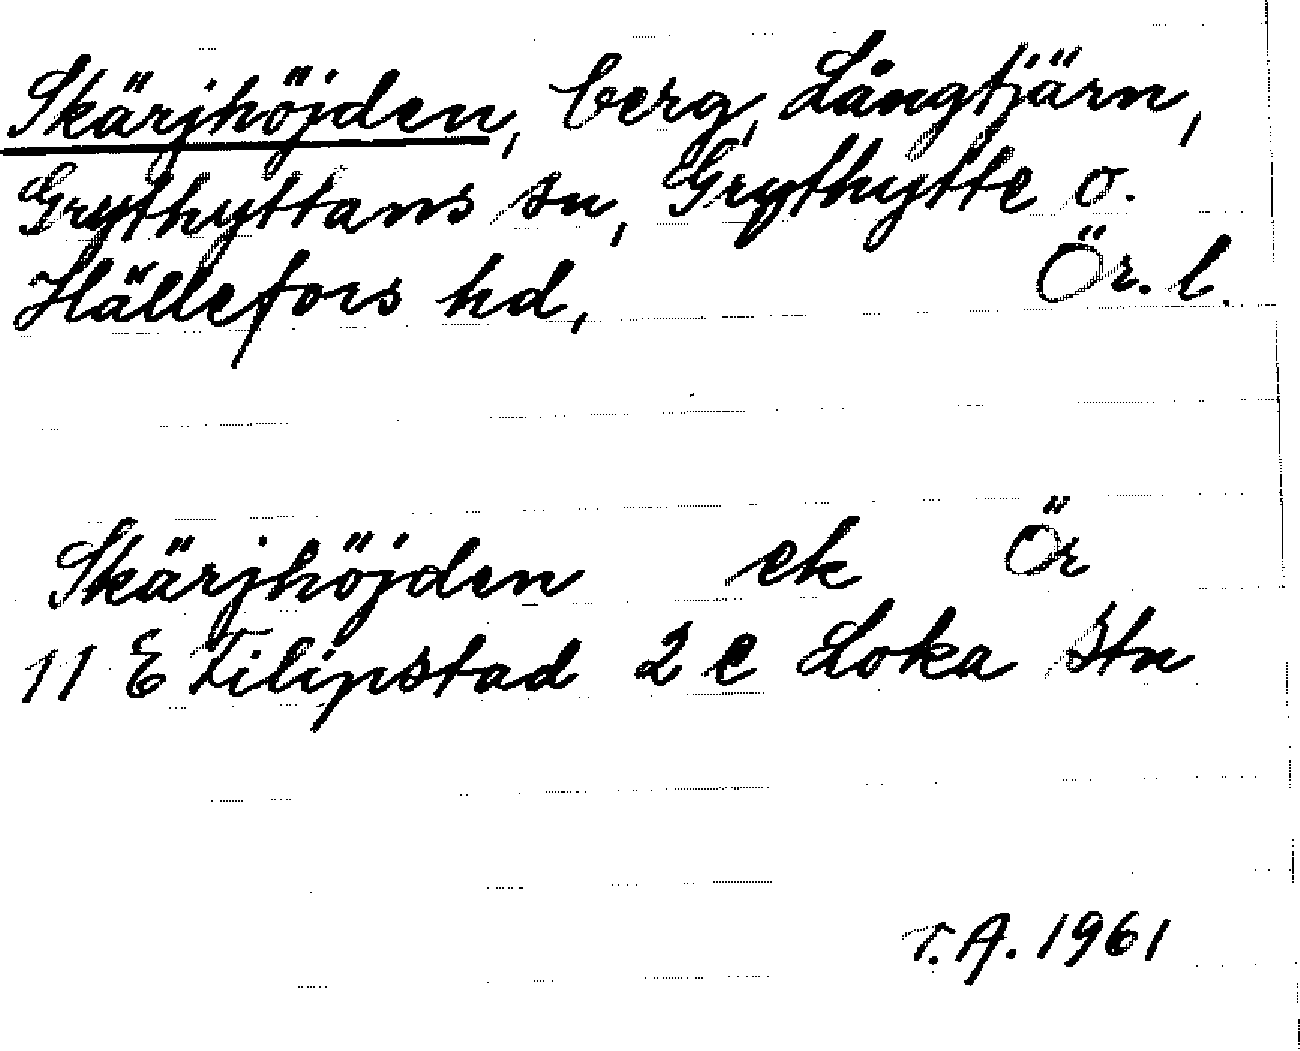 Skärjhöjden, berg, Långtjärn,
Grythyttans sn, Grythytte o.
Hällefors hd, Ör. l.
Skärjhöjden ek Ör
11 E Filipstad 2 c Loka Stn
T.A. 1961